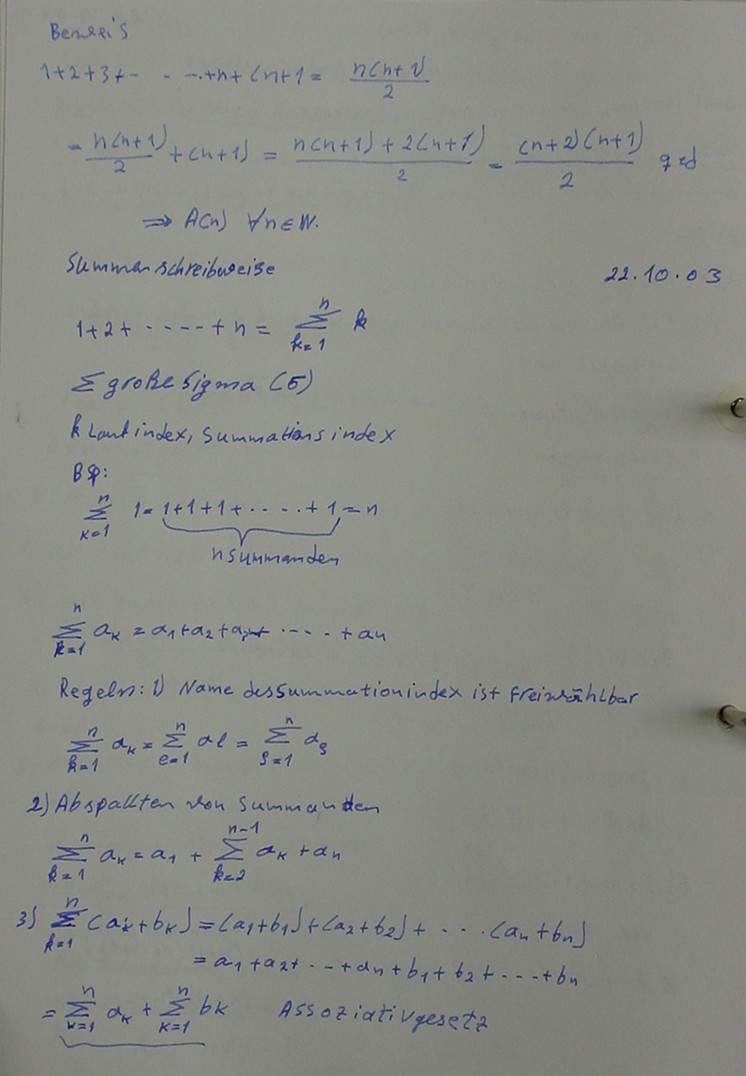 Beweis
1+2+3+- - -.+n+(n+1 = n(n+1)/2
= n(n+1)/2 + (n+1) = n(n+1)+2(n+1)/2 = (n+2)(n+1)/2 qed
⇒ A(n) ∀n∈N.
Summenschreibweise 22.10.03
1+2+ ····· +n = ∑_{k=1}^{n} k
∑ große Sigma (σ)
k Laufindex, Summationsindex
Bsp:
∑_{k=1}^{n} 1 = 1+1+1+ ····· + 1 = n
n summanden
∑_{k=1}^{n} a_k = a_1+a_2+a_3+ ····. + a_n
Regeln: 1) Name des Summationindex ist freiwählbar
∑_{k=1}^{n} a_k = ∑_{l=1}^{n} a_l = ∑_{s=1}^{n} a_s
2) Abspallten von Summanden
∑_{k=1}^{n} a_k = a_1 + ∑_{k=2}^{n-1} a_k + a_n
3) ∑_{k=1}^{n} (a_k+b_k) = (a_1+b_1)+(a_2+b_2)+ ··· (a_n+b_n)
= a_1+a_2+ ··· +a_n+b_1+b_2+ ···· +b_n
= ∑_{k=1}^{n} a_k + ∑_{k=1}^{n} b_k Assoziativgesetz